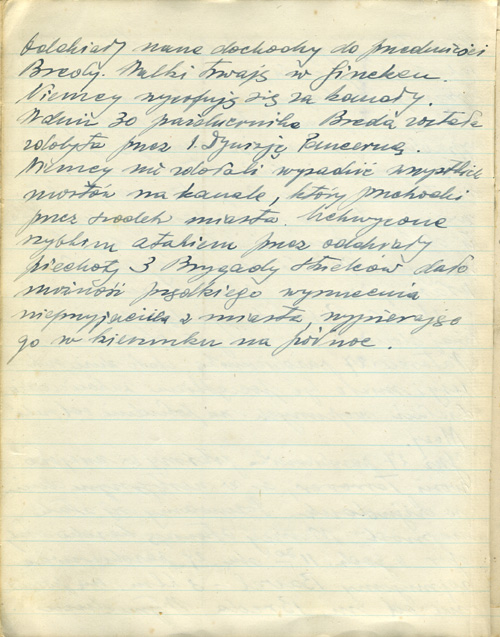 Oddziały nasze dochodzą do przedmieści
Bredy. Walki trwają w Gineken.
Niemcy wycofują się za kanały.
W dniu 30 październike Breda została
zdobyta przez 1. Dywizję Pancerną.
Niemcy nie zdołali wysadzić wszystkich
mostów na kanale, który przechodzi
przez środek miasta. Uchwycone
szybkim atakiem przez oddziały
piechoty 3 Brygady Strzelców dało
możność prędkiego wyrzucenia
nieprzyjaciela z miasta, wypierając
go w kierunku na północ.